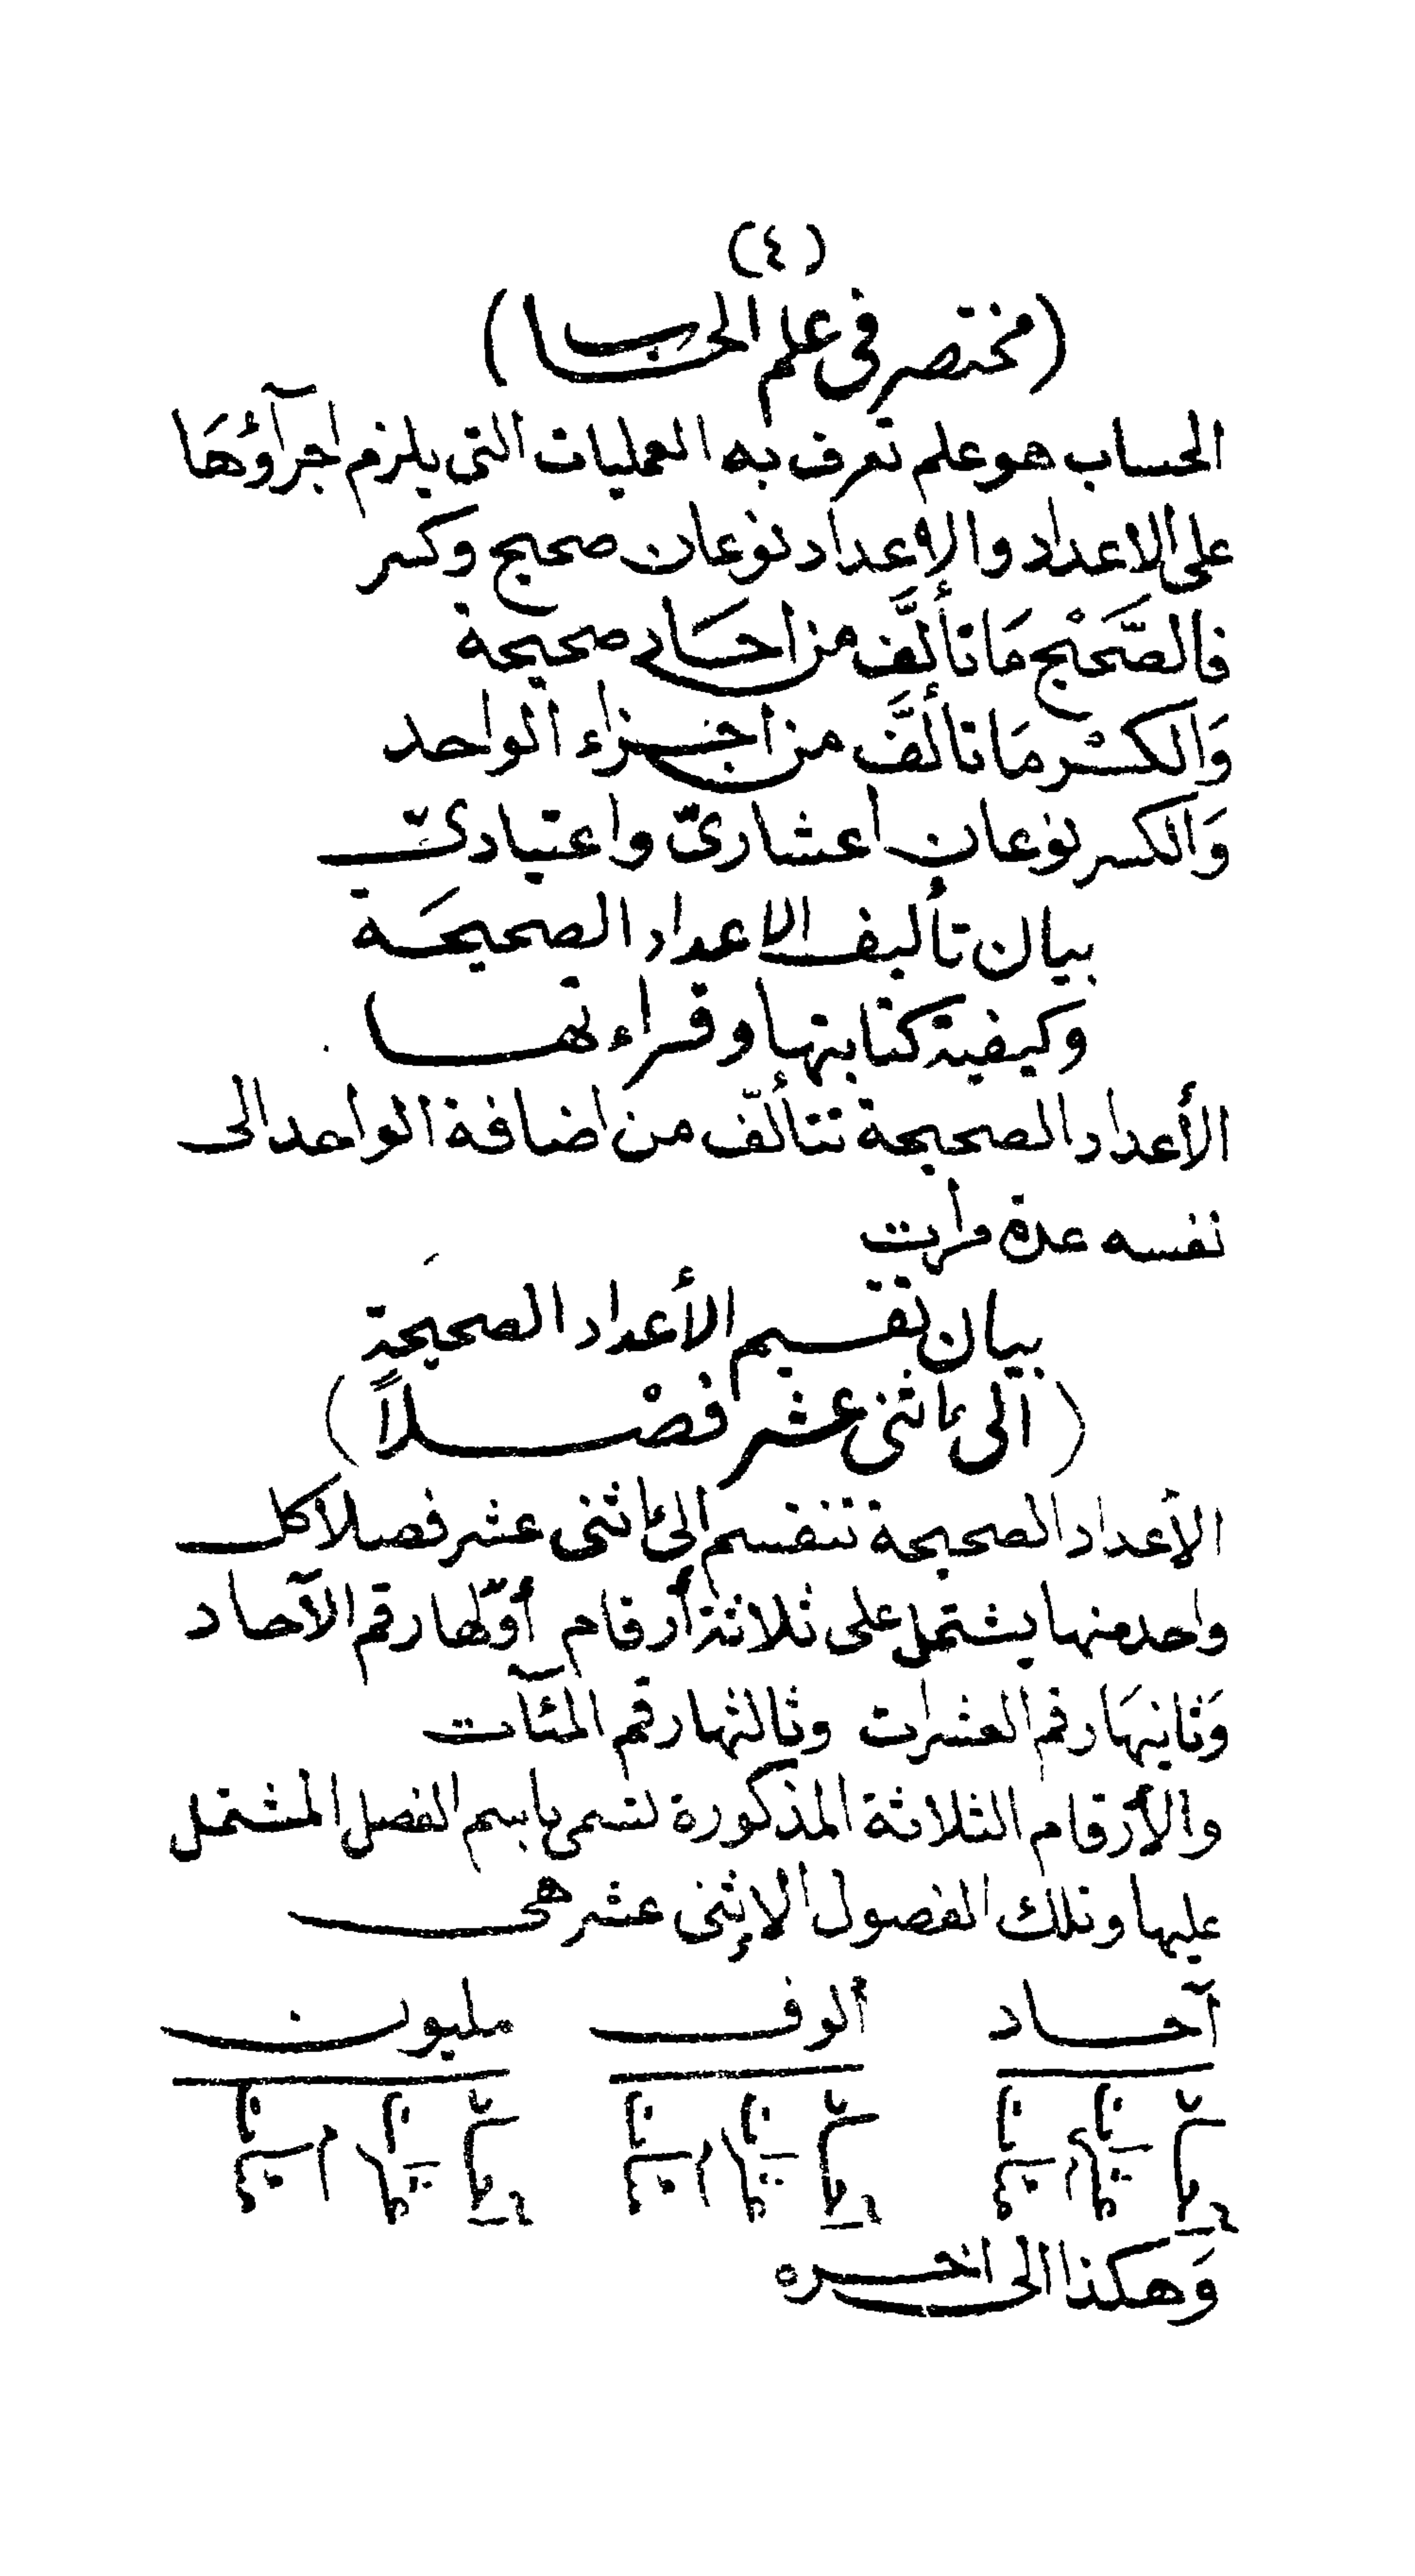 (٤)
(مختصر في علم الحساب)
الحساب هو علم تعرف به العمليات التي يلزم اجرآؤهَا
على الاعداد والاعداد نوعان صحيح وكسر
فالصَّحيْح مَا تألَّف من احَاد صحيحة
وَالكسْر مَا تألَّف من اجزاء الواحد
وَالكسر نوعان اعشاريّ واعتيادىّ
بيان تأليف الاعداد الصحيحَة
وكيفية كتابتها وقراءتها
الأعداد الصحيحة تتألّف من اضافة الواحد الى
نفسه عدة مرات
بيان تقسيم الأعداد الصحيحة
(الى اثنى عشر فصْلاً)
الأعداد الصحيحة تنقسم الى اثنى عشر فصلا كل
واحد منها يشتمل على ثلاثة أرقام أوّلها رقم الآحاد
وَثانيهَا رقم العشرات وثالثها رقم المئآت
والأرقام الثلاثة المذكورة تسمى باسم الفصل المشتمل
عليها وتلك الفصول الإثنى عشر هى
آحاد الوف مليون
وَهكذا الى اخره